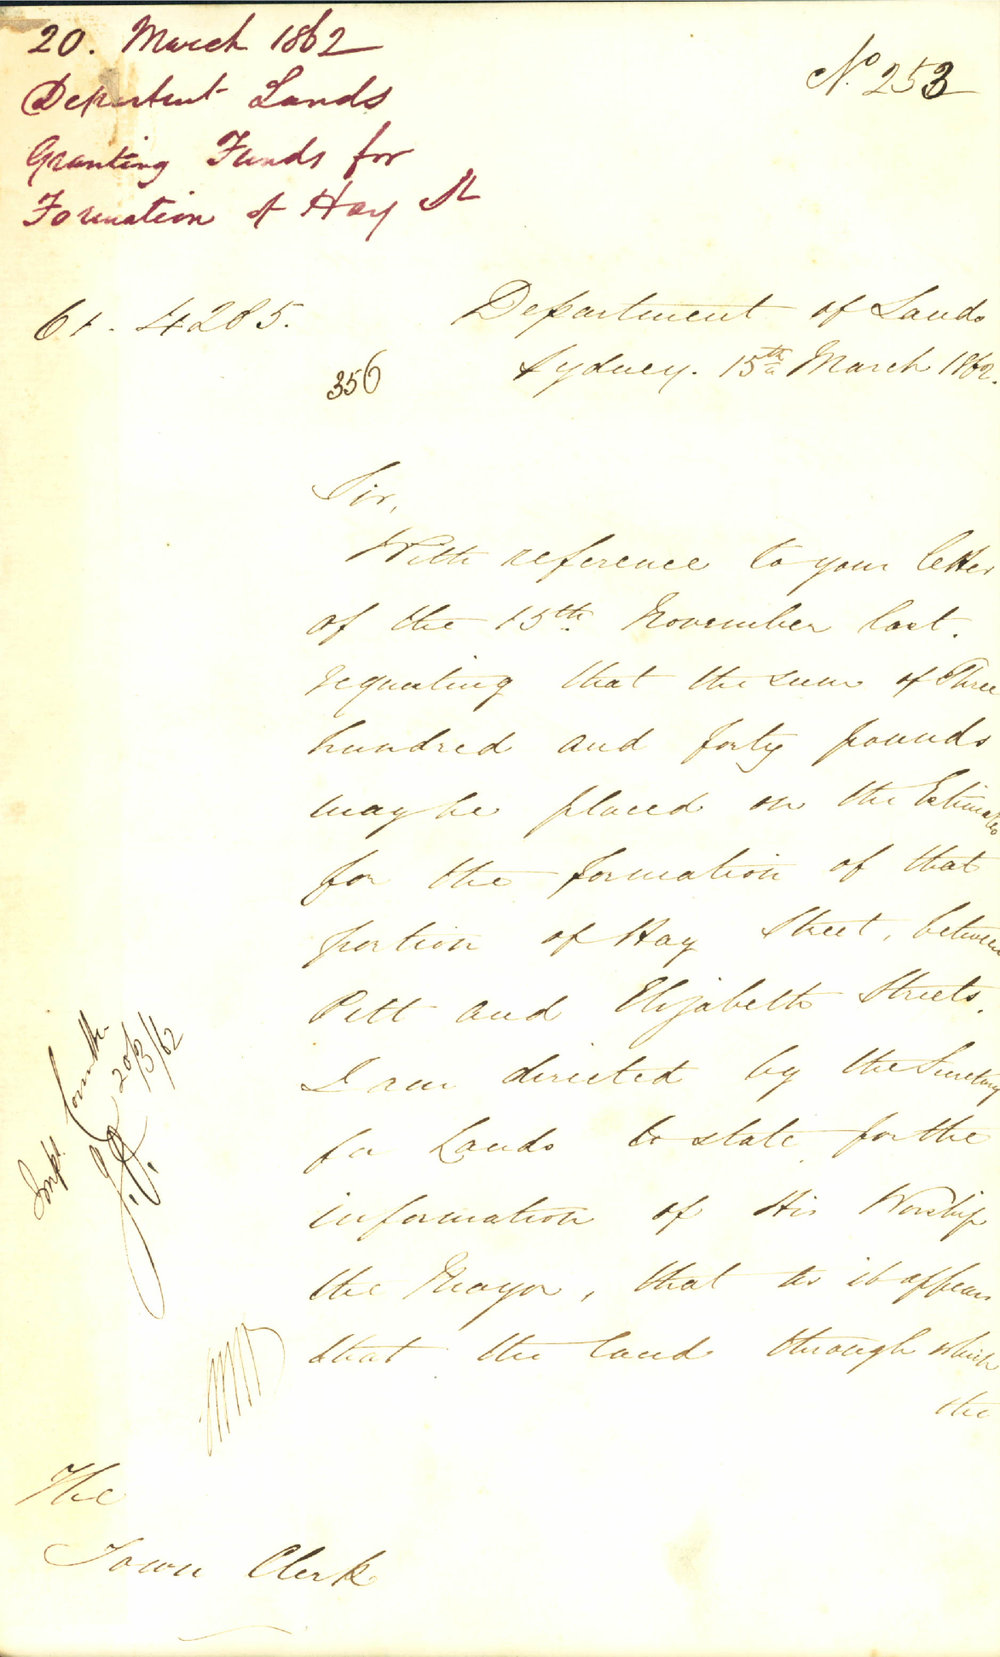 20. March 1862
Department Lands
Granting Funds for
Formation of Hay St
No. 253
61. 4285.
356
Department of Lands
Sydney. 15th March 1862.
Sir,
With reference to your letter
of the 15th. November last.
requesting that the sum of Three
hundred and forty pounds
may be placed on the Estimates
for the formation of that
portion of Hay Street, between
Pitt and Elizabeth Streets.
I am directed by the Secretary
for Lands to state for the
information of His Worship
the Mayor, that as it appears
that the land through which
the
Impt. Committee
20/3/62
The
Town Clerk